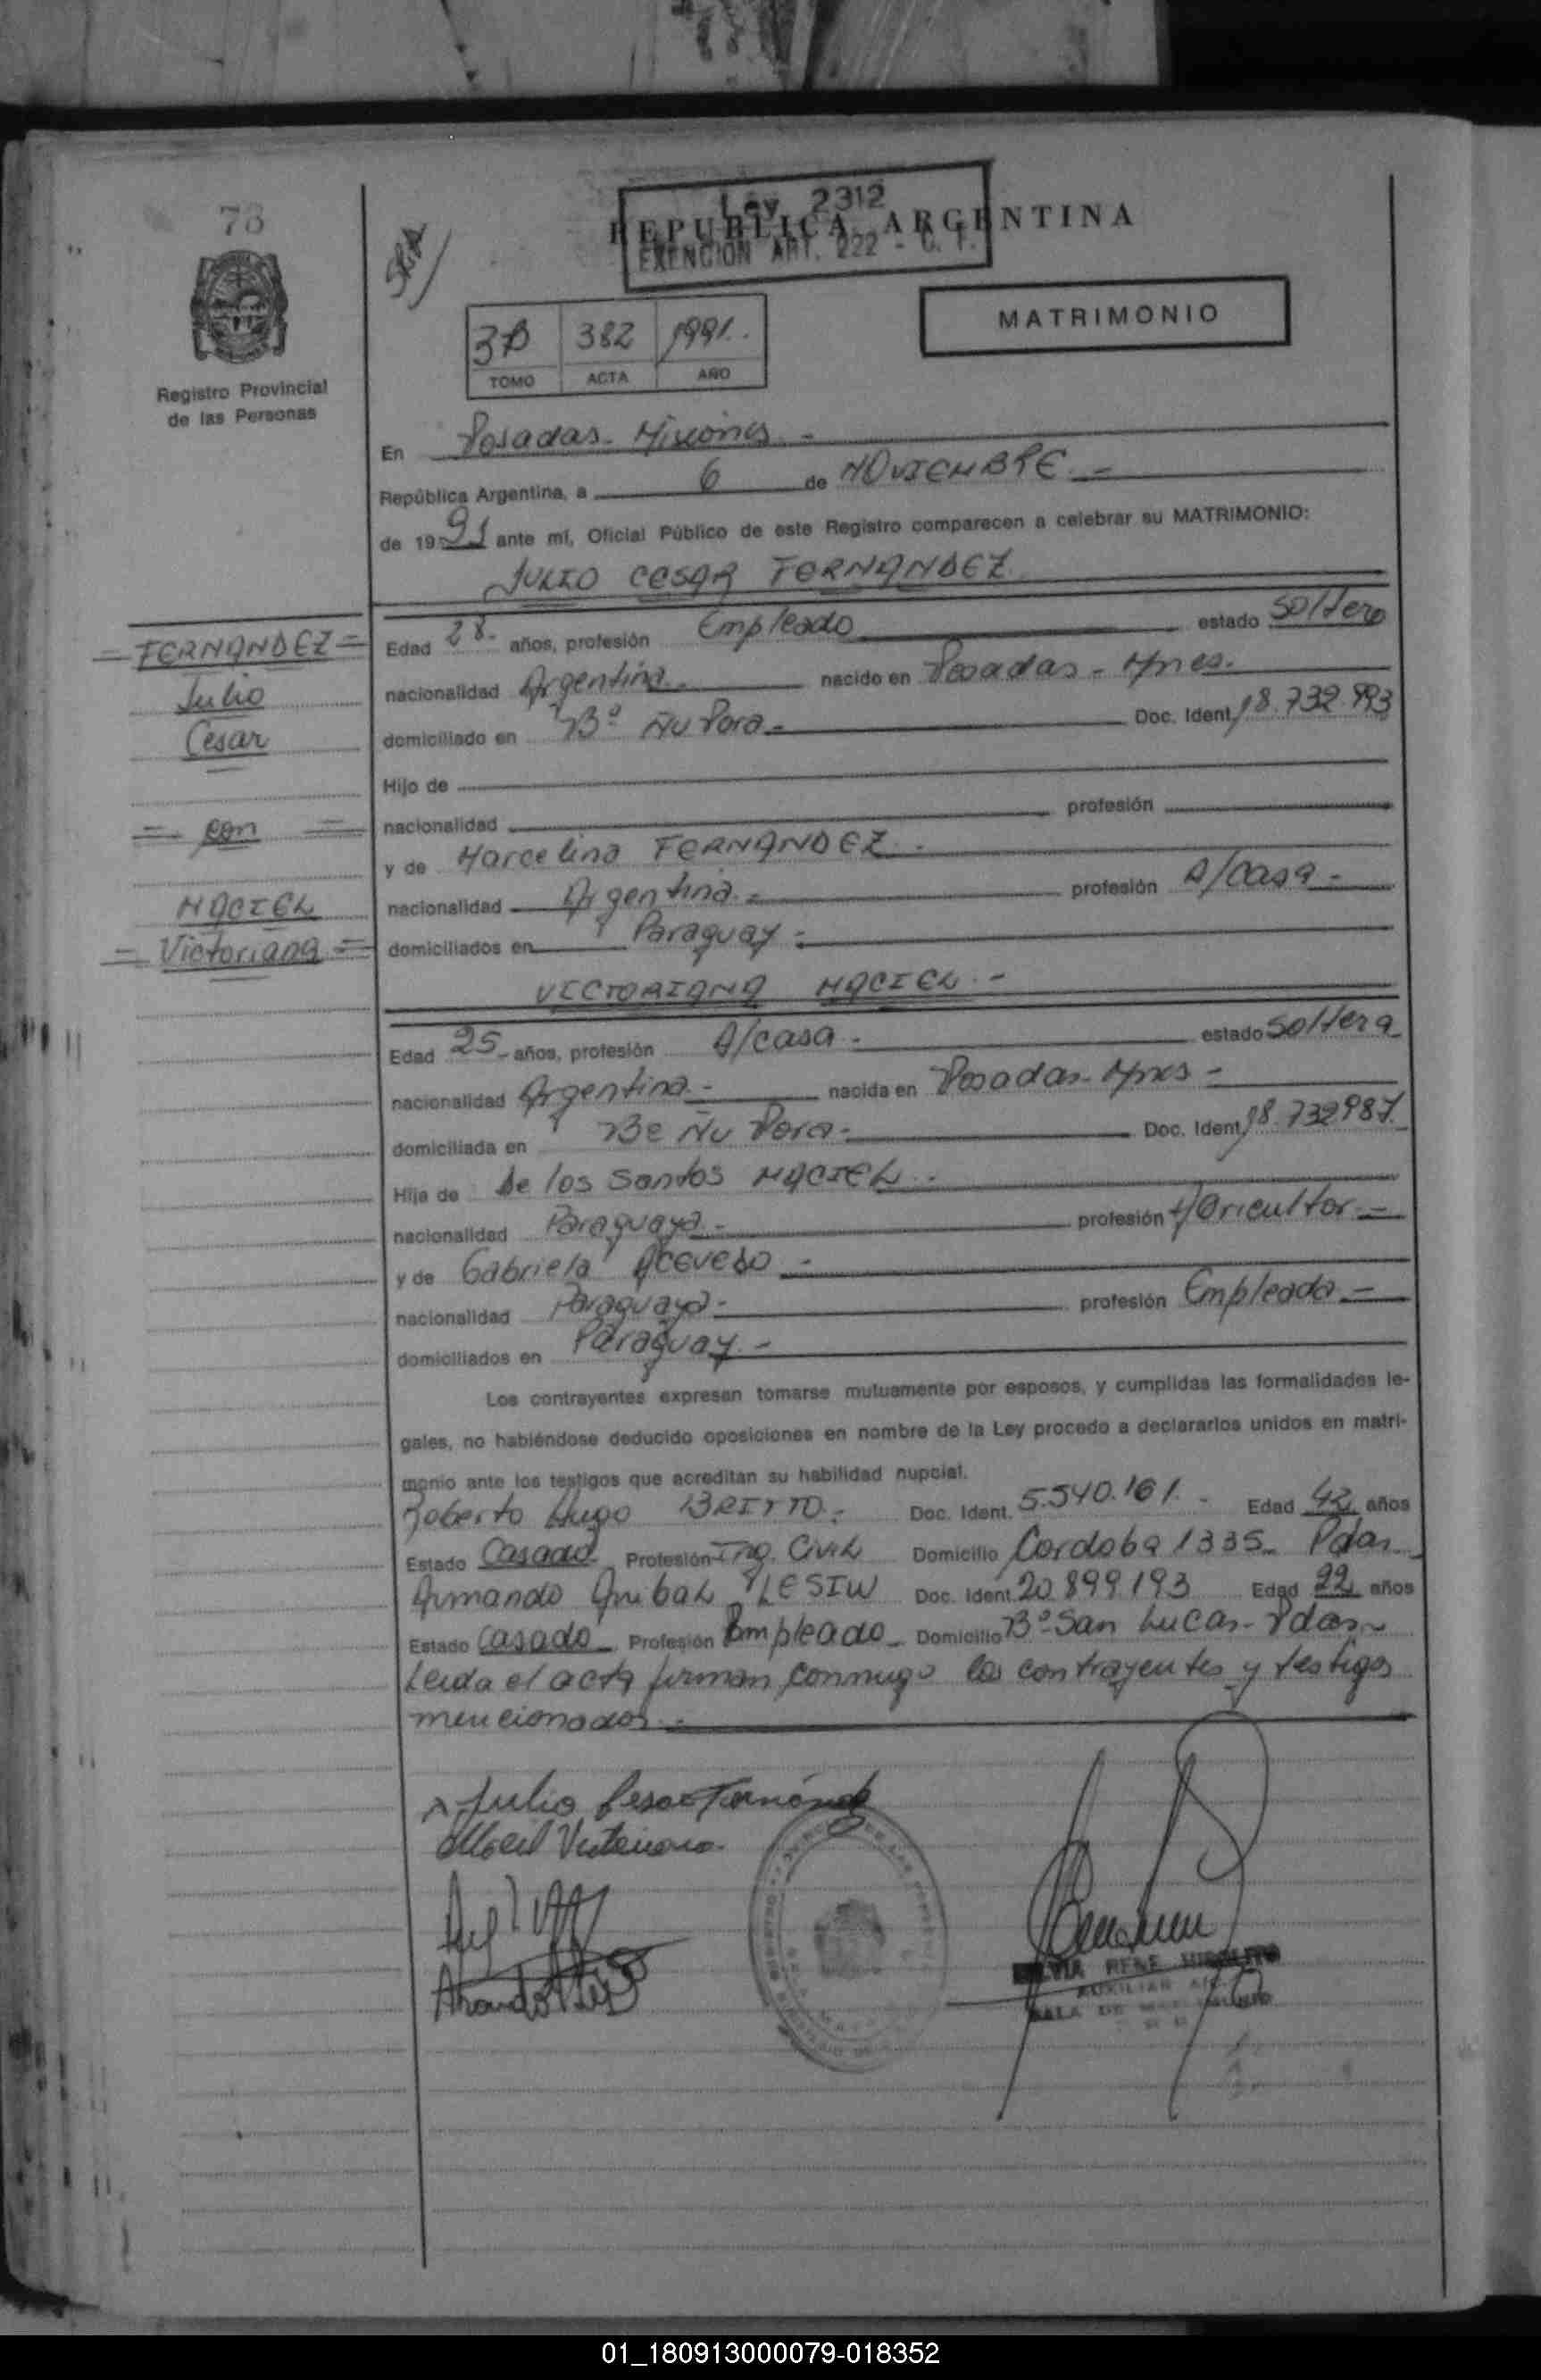 73
Ley 2312
REPUBLICA ARGENTINA
EXENCION ART. 222 - C. F.
MATRIMONIO
382 1991.
TOMO ACTA AÑO
Registro Provincial
de las Personas
En Posadas - Misiones -
República Argentina, a 6 de NOVIEMBRE -
de 19 91 ante mí, Oficial Público de este Registro comparecen a celebrar su MATRIMONIO:
JULIO CESAR FERNANDEZ
= FERNANDEZ =
Julio
Cesar
= con =
MACIEL
= Victoriana =
Edad 28- años, profesión Empleado estado Soltero
nacionalidad Argentina - nacido en Posadas - Mnes.
domiciliado en Bº Ñu Pora - Doc. Ident. 18.732.993
Hijo de
nacionalidad profesión
y de Marcelina FERNANDEZ -
nacionalidad Argentina - profesión A/casa -
domiciliados en Paraguay -
VICTORIANA MACIEL -
Edad 25- años, profesión A/casa - estado Soltera
nacionalidad Argentina - nacida en Posadas - Mnes -
domiciliada en Bº Ñu Pora - Doc. Ident. 18.732987.
Hija de De los Santos MACIEL -
nacionalidad Paraguaya - profesión Agricultor -
y de Gabriela Acevedo -
nacionalidad Paraguaya - profesión Empleada -
domiciliados en Paraguay -
Los contrayentes expresan tomarse mutuamente por esposos, y cumplidas las formalidades le-
gales, no habiéndose deducido oposiciones en nombre de la Ley procedo a declararlos unidos en matri-
monio ante los testigos que acreditan su habilidad nupcial.
Roberto Hugo BRITTO - Doc. Ident. 5.540.161. - Edad 42 años
Estado Casado Profesión Ing. Civil Domicilio Cordoba 1335 - Pdas -
Armando Anibal LESIW Doc. Ident. 20.899.193 Edad 22 años
Estado Casado - Profesión Empleado - Domicilio Bº San Lucas - Pdas -
Leida el acta firman conmigo los contrayentes y testigos
mencionados -
Julio Cesar Fernández
Maciel Victoriana
RENE HIPOLITO
AUXILIAR
SALA DE
01_180913000079-018352